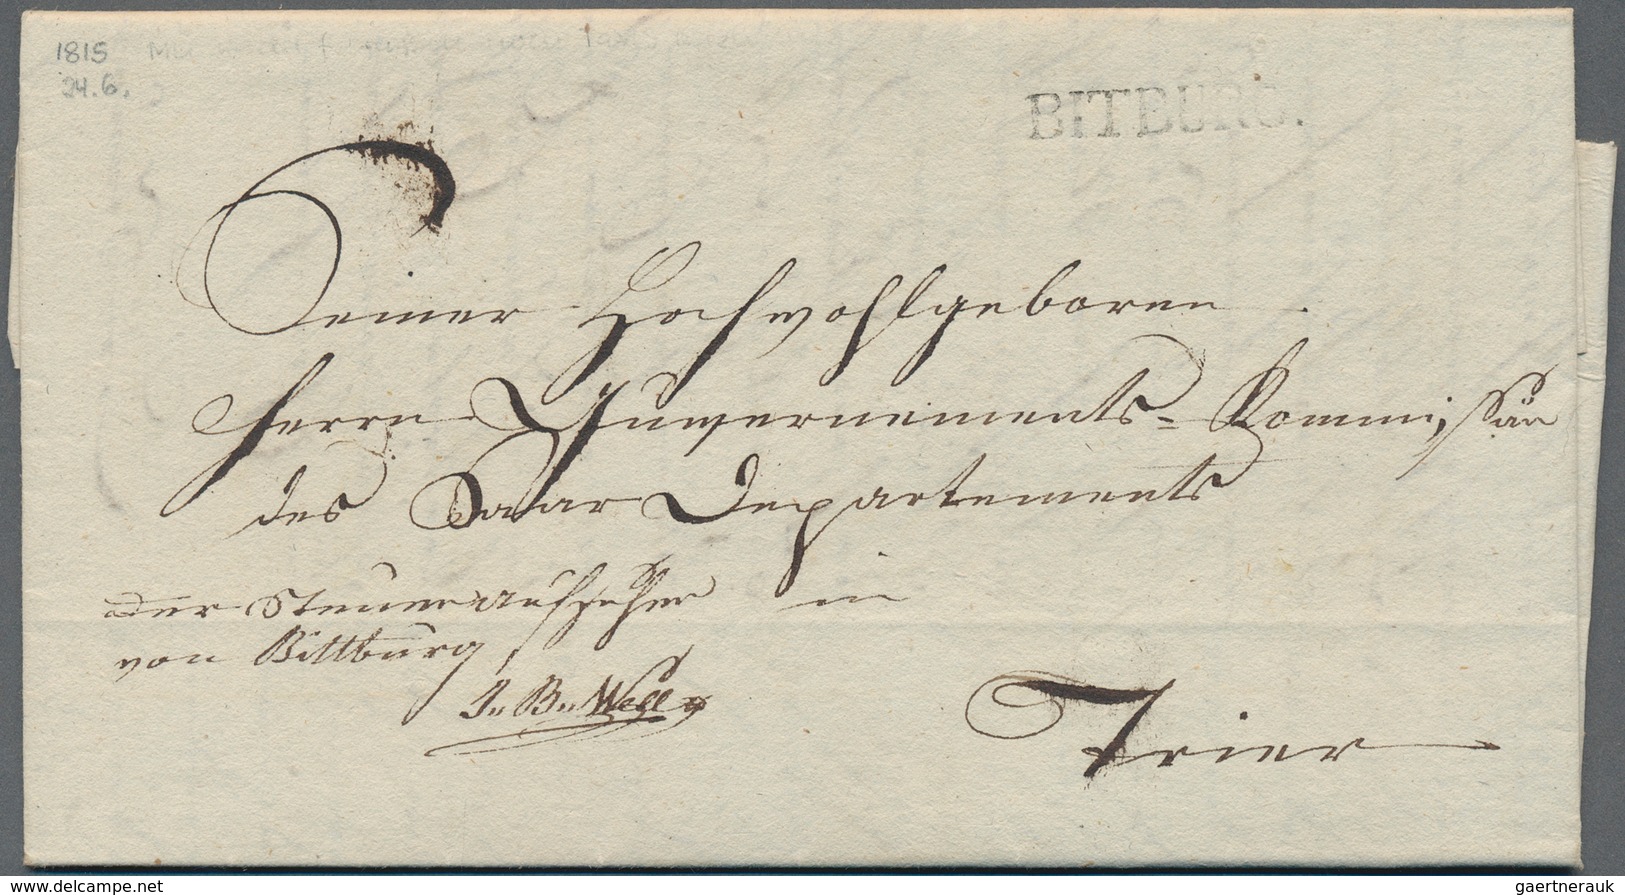 1815
24.6.
BITBURG.
Seiner Hochwohlgeboren
Herrn Guvernements-Kommissär
des Saar Departements
in
der Steueraufseher
von Bittburg
Trier
www.delcampe.net
gaertnerauk